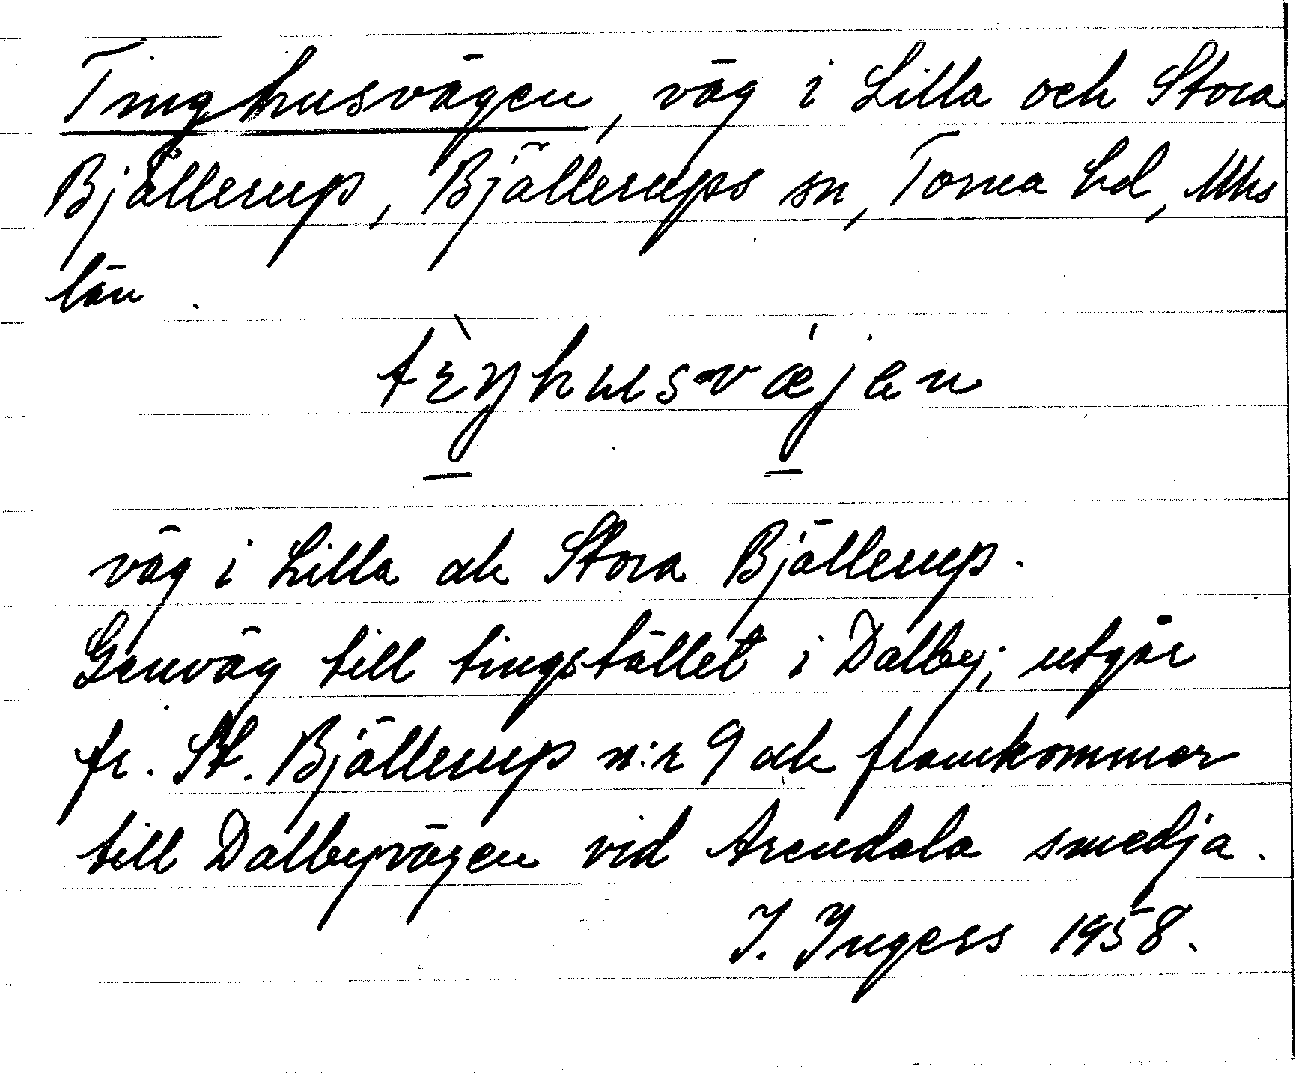 Tinghusvägen, väg i Lilla och Stora
Bjällerup, Bjällerups sn, Torna hd, Mhs
län.
tèŋhusvǽjen
väg i Lilla och Stora Bjällerup.
Genväg till tingstället i Dalby; utgår
fr. St. Bjällerup n:r 9 och framkommer
till Dalbyvägen vid Arendala smedja.
I. Ingers 1958.